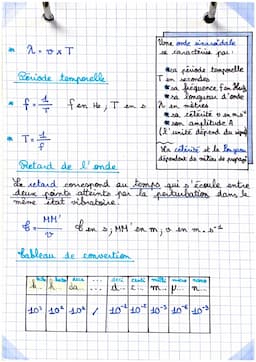 λ = v x T
Période temporelle
f = 1/T f en Hz, T en s
T = 1/f
Retard de l'onde
Le retard correspond au temps qui s'écoule entre
deux points atteints par la perturbation dans le
même état vibratoire.
MM'/v en s, MM' en m, v en m.s⁻¹
Tableau de convertion
kilo hecto deca ... deci centi milli micro nano
k h da ... d c m μ n
10³ 10² 10¹ / 10⁻¹ 10⁻² 10⁻³ 10⁻⁶ 10⁻⁹
Une onde sinusoïdale
se caractérise par :
sa période temporelle
T en secondes
sa fréquence f en Hertz
sa longueur d'onde
λ en mètres
sa célérité v en m.s⁻¹
son amplitude A
(l'unité dépend du signal)
La célérité et la longueur
dépendent du milieu de propag